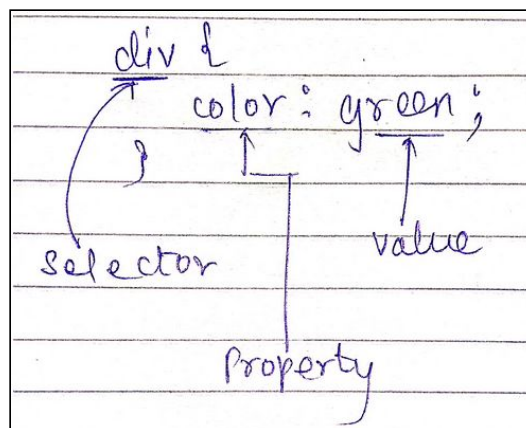 div {
color: green;
}
selector
value
Property